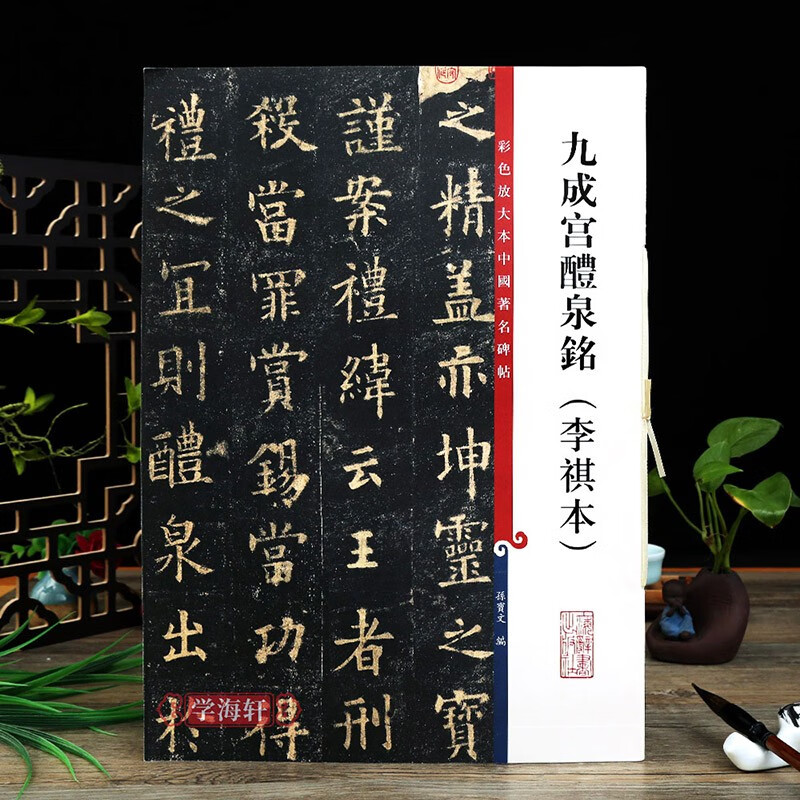 九成宫醴泉銘（李祺本）
彩色放大本中國著名碑帖
孫寶文 編
之精盖亦坤靈之寶
謹案禮緯云王者刑
殺當罪賞錫當功得
禮之冝則醴泉出
学海轩